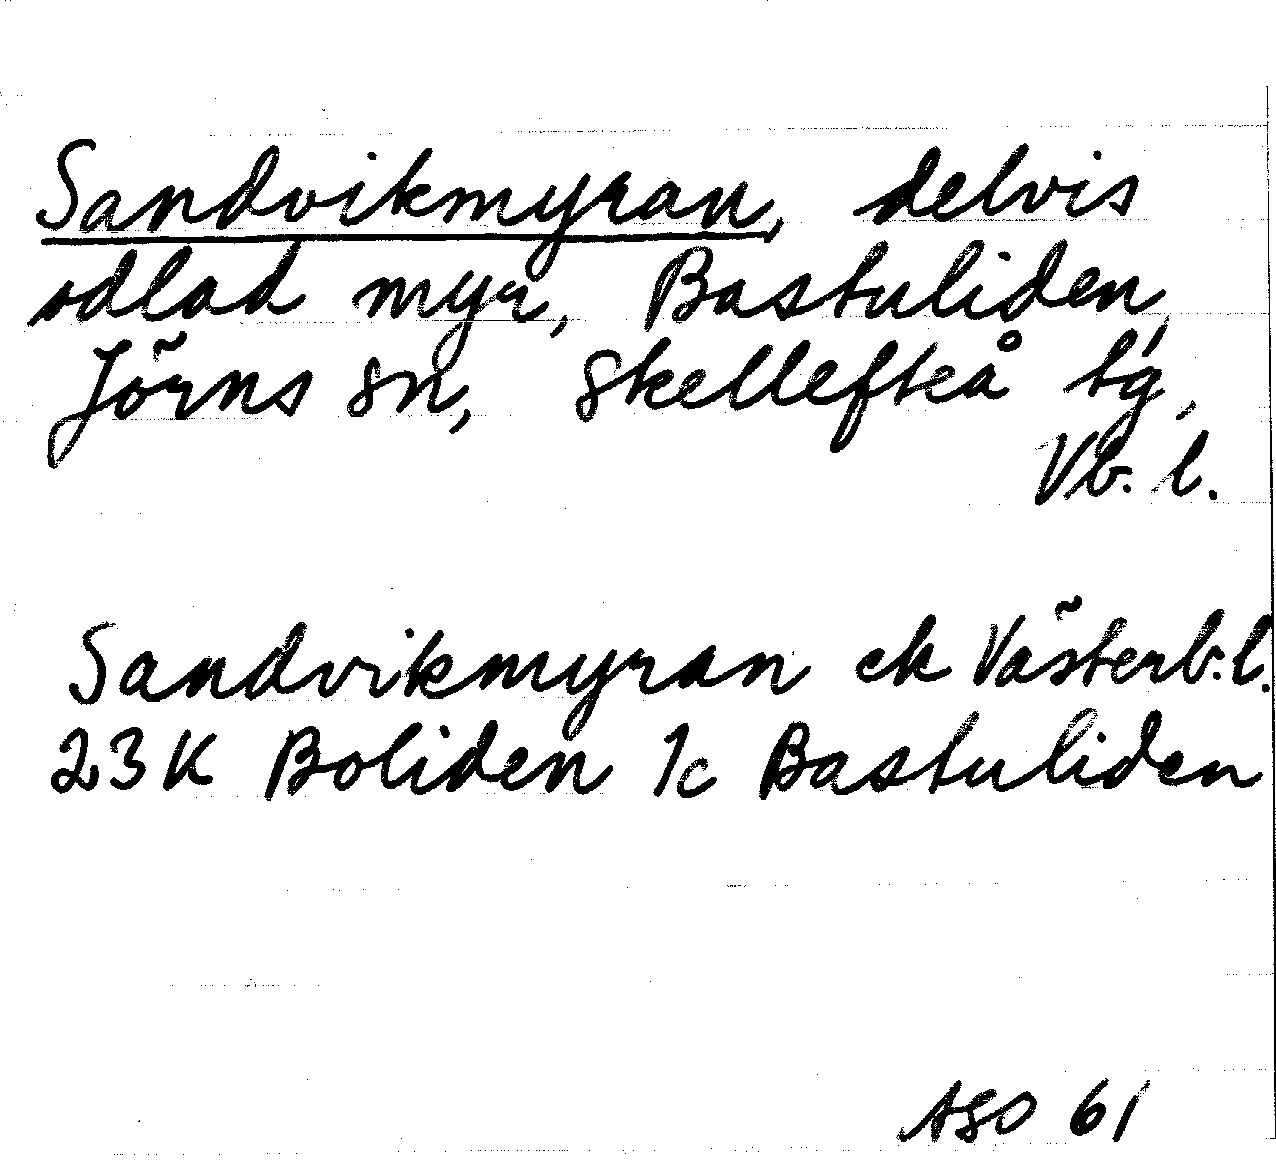 Sandvikmyran, delvis
odlad myr, Bastuliden,
Jörns sn, Skellefteå tg,
Vb. l.
Sandvikmyran ek Västerb.l.
23K Boliden 1c Bastuliden
ASO 61